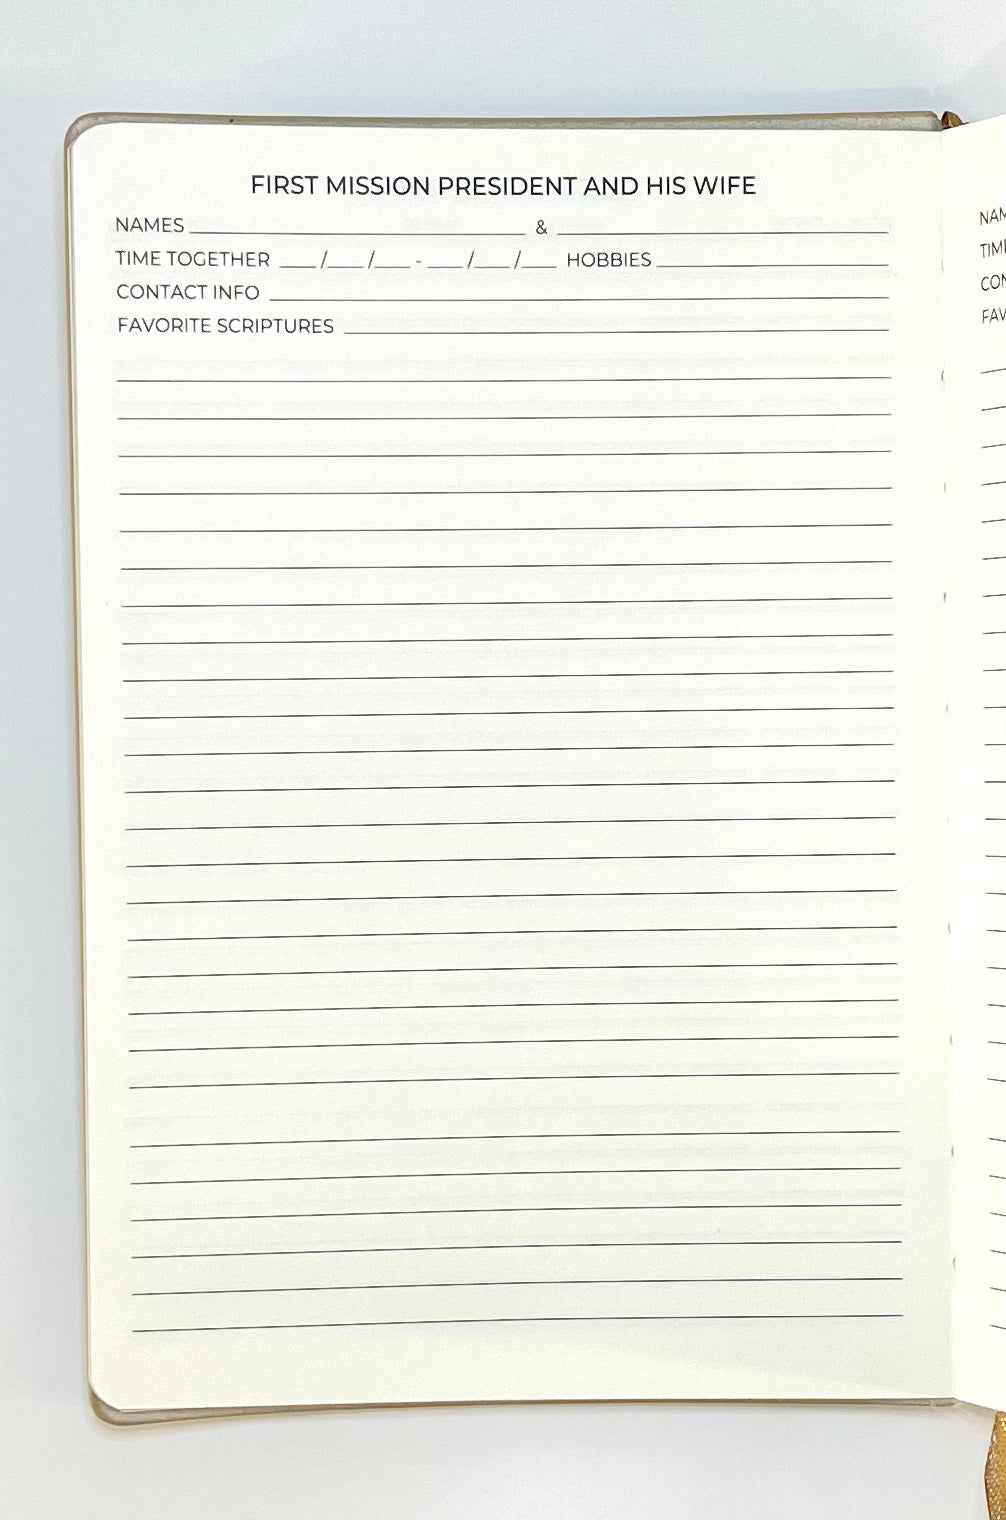 FIRST MISSION PRESIDENT AND HIS WIFE
NAMES ______ & ______
TIME TOGETHER ___/___/___ - ___/___/___ HOBBIES ______
CONTACT INFO ______
FAVORITE SCRIPTURES ______
NAM
TIME
CON
FAV